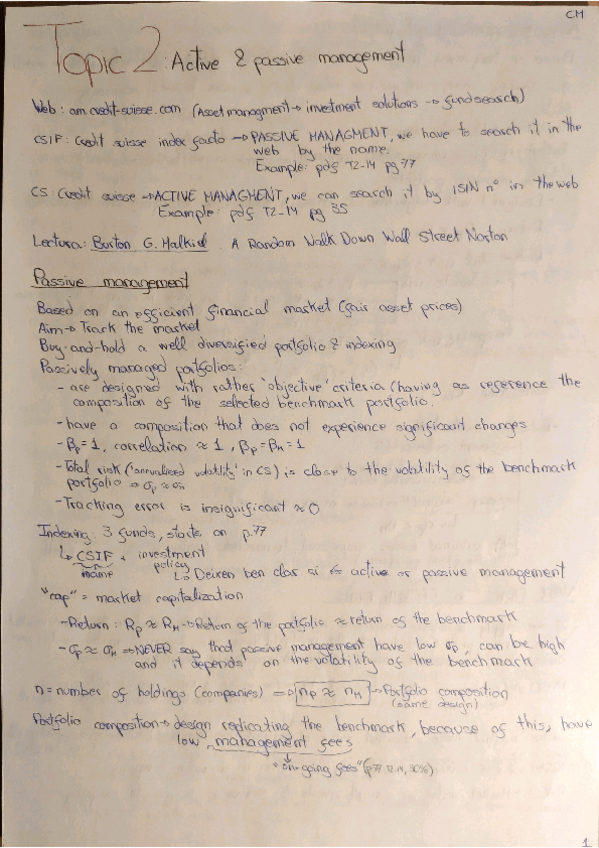 CM
Topic 2: Active & passive management
Web: am.credit-suisse.com (Asset managment → investment solutions → fundsearch)
CSIF: Credit suisse index facto → PASSIVE MANAGMENT, we have to search it in the
web by the name.
Example: pdf T2-14 pg 77
CS: Credit suisse → ACTIVE MANAGMENT, we can search it by ISIN nº in the web
Example: pdf T2-14 pg 35
Lectura: Burton G. Malkiel. A Random Walk Down Wall Street Norton
Passive management
Based on an efficient financial market (fair asset prices)
Aim → Track the market
Buy-and-hold a well diversified portfolio & indexing
Passively managed portfolios:
- are designed with rather 'objective' criteria (having as reference the
composition of the selected benchmark portfolio.
- have a composition that does not experience significant changes
- βp = 1, correlation ≈ 1, βp = βM = 1
- Total risk ('annualized volatility' in CS), is close to the volatility of the benchmark
portfolio → σp ≈ σM
- Tracking error is insignificant ≈ 0
Indexing: 3 funds, starts on p.77
↳ CSIF + investment
name policy
↳ Deixen ben clar si és active or passive management
"cap" = market capitalization
- Return: Rp ≈ RM → Return of the portfolio ≈ return of the benchmark
- σp ≈ σM ⇒ NEVER say that passive management have low σp, can be high
and it depends on the volatility of the benchmark
n = number of holdings (companies) ⇒ np ≈ nM → Portfolio composition
(same design)
Portfolio composition → design replicating the benchmark, because of this, have
low management fees
↓
"on-going fees"
1